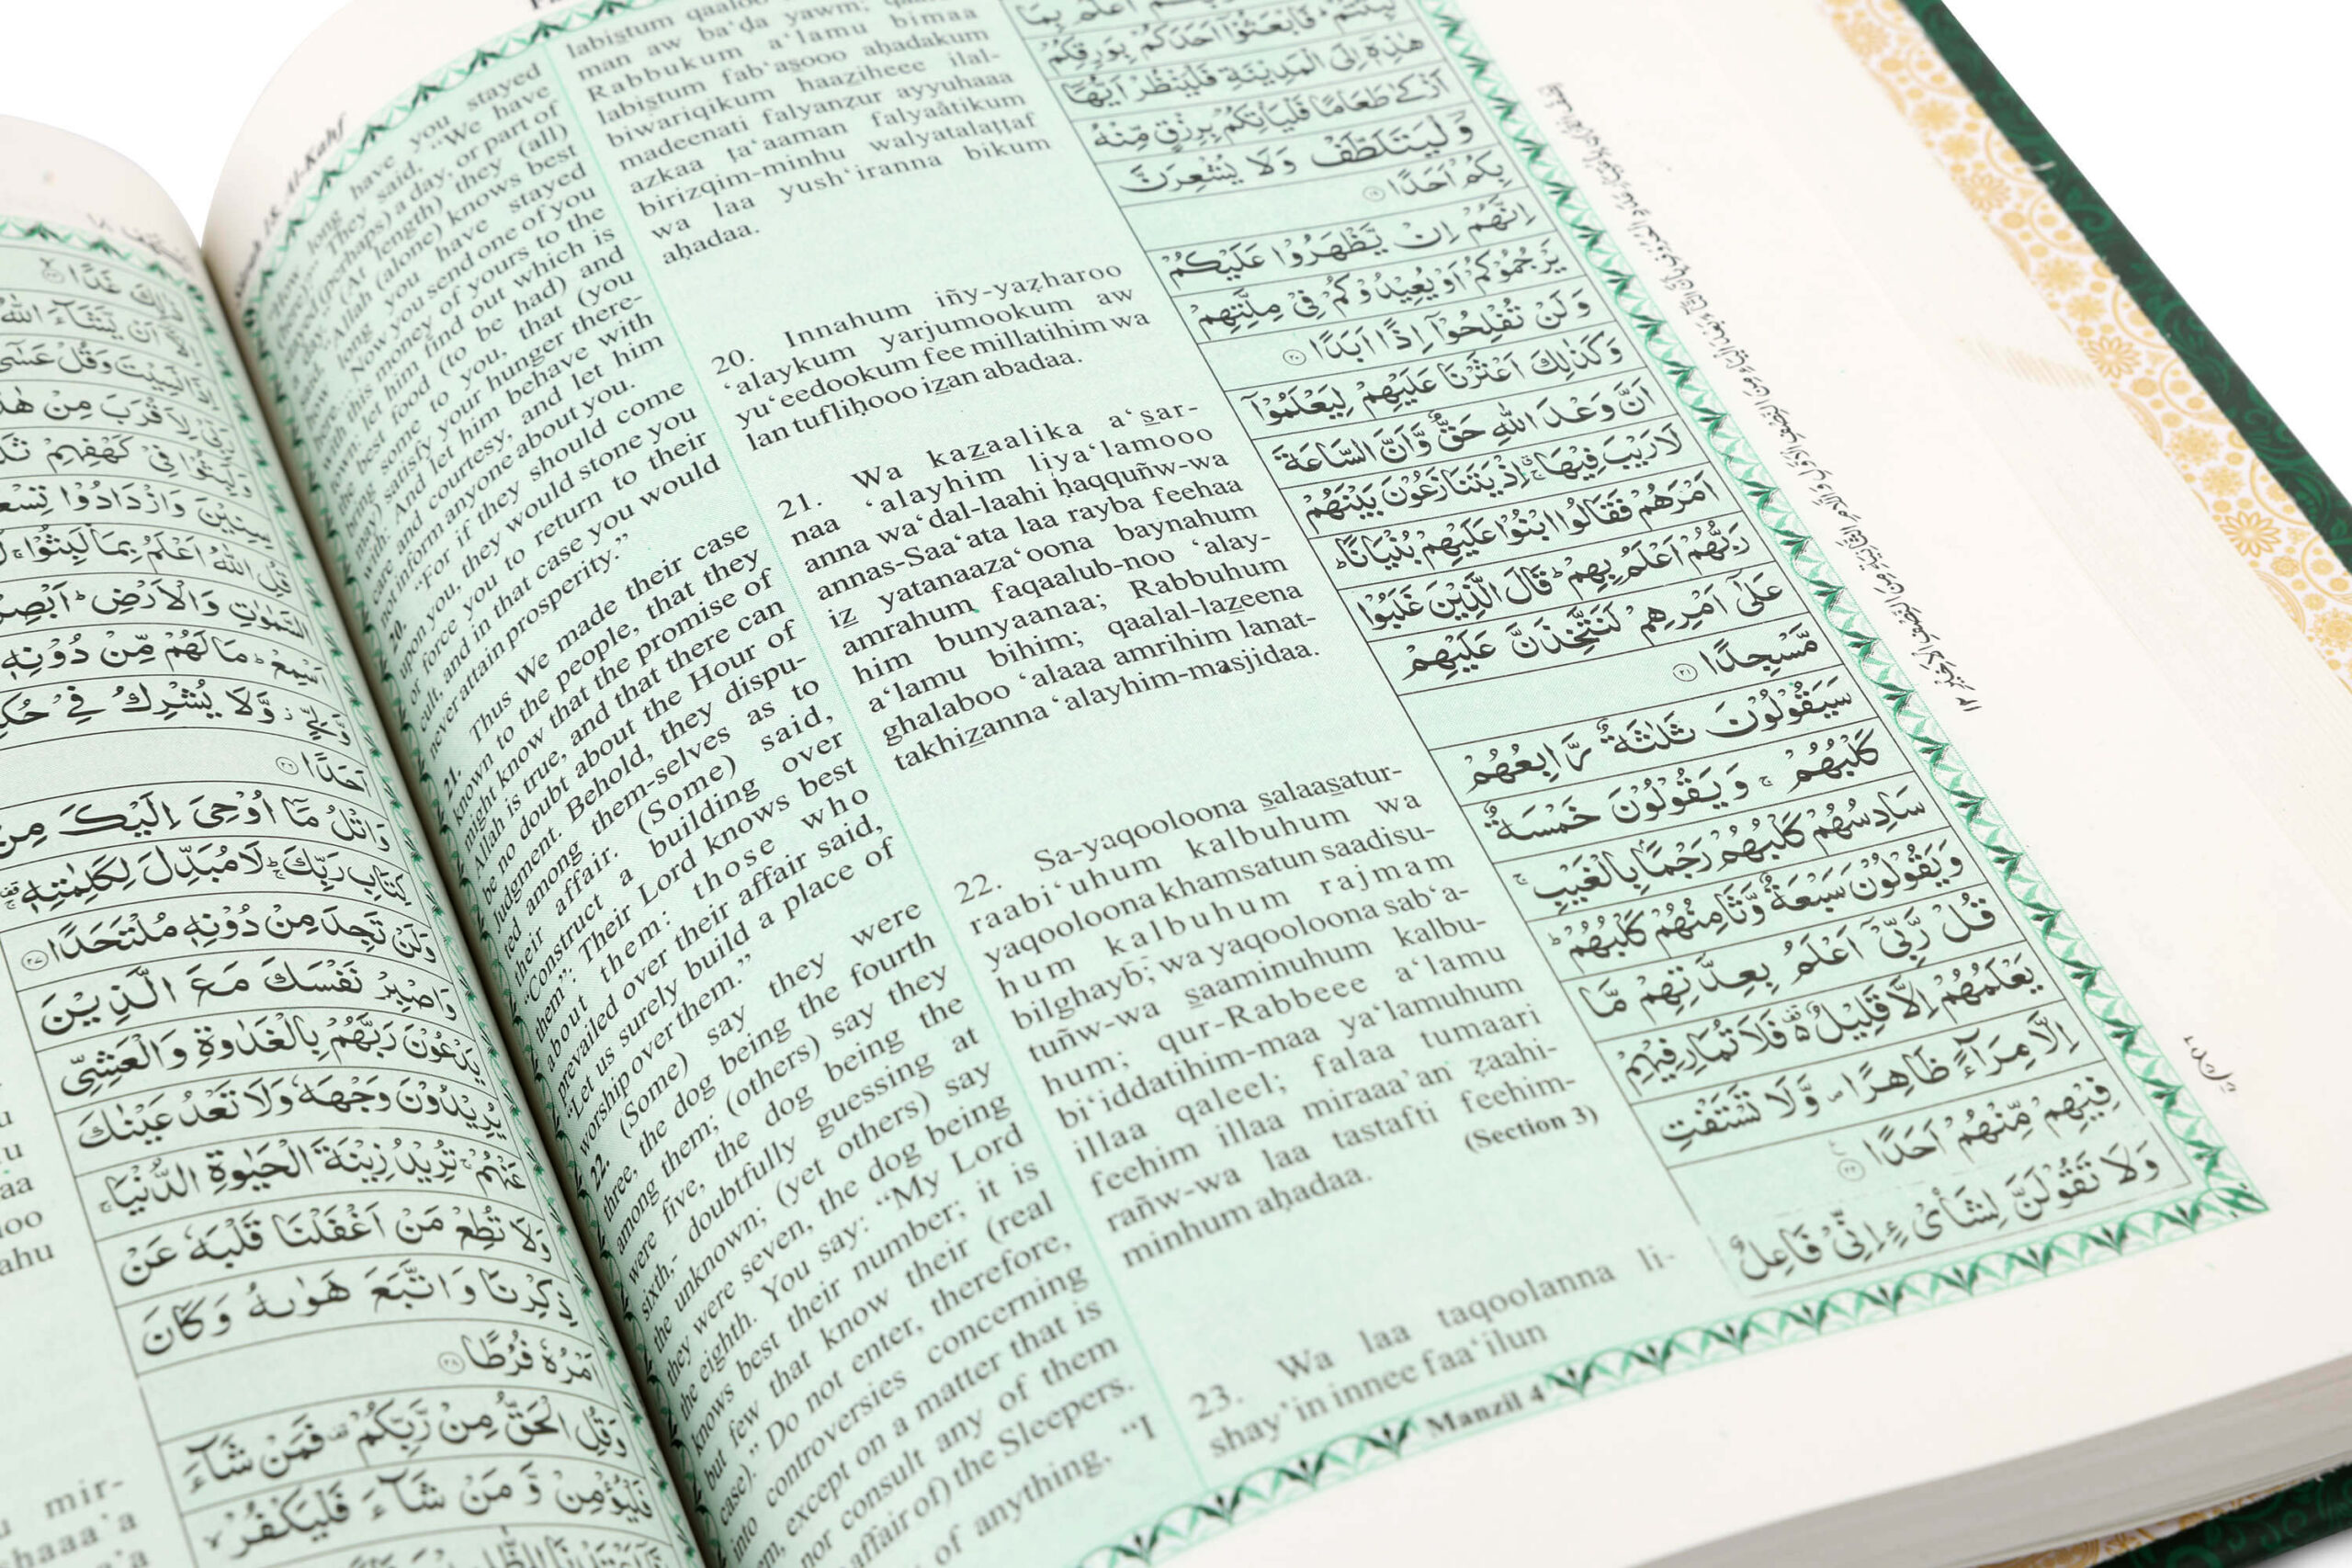 Al-Kahf
have you stayed
They said, "We have
(perhaps) a day, or part of
(At length) they (all)
"Allah (alone) knows best
long you have stayed
Now you send one of you
with this money of yours to the
let him find out which is
best food (to be had) and
some to you, that (you
may) satisfy your hunger there-
with: And let him behave with
care and courtesy, and let him
not inform anyone about you.
20. "For if they should come
upon you, they would stone you
or force you to return to their
cult, and in that case you would
never attain prosperity."
21. Thus We made their case
known to the people, that they
might know that the promise of
Allah is true, and that there can
be no doubt about the Hour of
Judgment. Behold, they dispu-
ted among them-selves as to
their affair. (Some) said,
"Construct a building over
them": Their Lord knows best
about them: those who
prevailed over their affair said,
"Let us surely build a place of
worship over them."
22. (Some) say they were
three, the dog being the fourth
among them; (others) say they
were five, the dog being the
sixth,- doubtfully guessing at
the unknown; (yet others) say
they were seven, the dog being
the eighth. You say: "My Lord
knows best their number; it is
but few that know their (real
case)." Do not enter, therefore,
into controversies concerning
them, except on a matter that is
nor consult any of them
affair of) the Sleepers.
of anything, "I
labistum qaaloo
man aw ba'da yawm;
Rabbukum a'lamu bimaa
labistum fab'asooo aḥadakum
biwariqikum haaziheee ilal-
madeenati falyanẓur ayyuhaaa
azkaa ṭa'aaman falyaâtikum
birizqim-minhu walyatalaṭṭaf
wa laa yush'iranna bikum
aḥadaa.
20. Innahum iñy-yaẓharoo
'alaykum yarjumookum aw
yu'eedookum fee millatihim wa
lan tufliḥooo izan abadaa.
21. Wa kazaalika a'sar-
naa 'alayhim liya'lamooo
anna wa'dal-laahi ḥaqquñw-wa
annas-Saa'ata laa rayba feehaa
iz yatanaaza'oona baynahum
amrahum faqaalub-noo 'alay-
him bunyaanaa; Rabbuhum
a'lamu bihim; qaalal-lazeena
ghalaboo 'alaaa amrihim lanat-
takhizanna 'alayhim-masjidaa.
22. Sa-yaqooloona salaasatur-
raabi'uhum kalbuhum wa
yaqooloona khamsatun saadisu-
hum kalbuhum rajmam
bilghayb; wa yaqooloona sab'a-
tuñw-wa saaminuhum kalbu-
hum; qur-Rabbeee a'lamu
bi'iddatihim-maa ya'lamuhum
illaa qaleel; falaa tumaari
feehim illaa miraaa'an ẓaahi-
rañw-wa laa tastafti feehim-
minhum aḥadaa. (Section 3)
23. Wa laa taqoolanna li-
shay'in innee faa'ilun
لَبِثْتُمْ فَابْعَثُوْٓا اَحَدَكُمْ بِوَرِقِكُمْ
هٰذِهٖٓ اِلَى الْمَدِيْنَةِ فَلْيَنْظُرْ اَيُّهَآ
اَزْكٰى طَعَامًا فَلْيَاْتِكُمْ بِرِزْقٍ مِّنْهُ
وَلْيَتَلَطَّفْ وَلَا يُشْعِرَنَّ
بِكُمْ اَحَدًا ۝١٩
اِنَّهُمْ اِنْ يَّظْهَرُوْا عَلَيْكُمْ
يَرْجُمُوْكُمْ اَوْ يُعِيْدُوْكُمْ فِيْ مِلَّتِهِمْ
وَلَنْ تُفْلِحُوْٓا اِذًا اَبَدًا ۝٢٠
وَكَذٰلِكَ اَعْثَرْنَا عَلَيْهِمْ لِيَعْلَمُوْٓا
اَنَّ وَعْدَ اللّٰهِ حَقٌّ وَّاَنَّ السَّاعَةَ
لَا رَيْبَ فِيْهَا ۚ اِذْ يَتَنَازَعُوْنَ بَيْنَهُمْ
اَمْرَهُمْ فَقَالُوا ابْنُوْا عَلَيْهِمْ بُنْيَانًا ؕ
رَبُّهُمْ اَعْلَمُ بِهِمْ ؕ قَالَ الَّذِيْنَ غَلَبُوْا
عَلٰٓى اَمْرِهِمْ لَنَتَّخِذَنَّ عَلَيْهِمْ
مَّسْجِدًا ۝٢١
سَيَقُوْلُوْنَ ثَلٰثَةٌ رَّابِعُهُمْ
كَلْبُهُمْ ۚ وَيَقُوْلُوْنَ خَمْسَةٌ
سَادِسُهُمْ كَلْبُهُمْ رَجْمًۢا بِالْغَيْبِ ۚ
وَيَقُوْلُوْنَ سَبْعَةٌ وَّثَامِنُهُمْ كَلْبُهُمْ ؕ
قُلْ رَّبِّيْٓ اَعْلَمُ بِعِدَّتِهِمْ مَّا
يَعْلَمُهُمْ اِلَّا قَلِيْلٌ ۟ فَلَا تُمَارِ فِيْهِمْ
اِلَّا مِرَآءً ظَاهِرًا ۪ وَّلَا تَسْتَفْتِ
فِيْهِمْ مِّنْهُمْ اَحَدًا ۝٢٢
وَلَا تَقُوْلَنَّ لِشَايْءٍ اِنِّيْ فَاعِلٌ
Manzil 4
ذٰلِكَ غَدًا ۝٢٣
اِلَّآ اَنْ يَّشَآءَ اللّٰهُ
نَّسِيْتَ وَقُلْ عَسٰٓى
لِاَقْرَبَ مِنْ هٰذَا
وَلَبِثُوْا فِيْ كَهْفِهِمْ
سِنِيْنَ وَازْدَادُوْا تِسْعًا
قُلِ اللّٰهُ اَعْلَمُ بِمَا لَبِثُوْا ۚ
السَّمٰوٰتِ وَالْاَرْضِ ؕ اَبْصِرْ
مَا لَهُمْ مِّنْ دُوْنِهٖ
وَّلَا يُشْرِكُ فِيْ
اَحَدًا ۝٢٦
وَاتْلُ مَآ اُوْحِيَ اِلَيْكَ مِنْ
كِتَابِ رَبِّكَ ۚ لَا مُبَدِّلَ لِكَلِمٰتِهٖ
وَلَنْ تَجِدَ مِنْ دُوْنِهٖ مُلْتَحَدًا ۝٢٧
وَاصْبِرْ نَفْسَكَ مَعَ الَّذِيْنَ
يَدْعُوْنَ رَبَّهُمْ بِالْغَدٰوةِ وَالْعَشِيِّ
يُرِيْدُوْنَ وَجْهَهٗ وَلَا تَعْدُ عَيْنٰكَ
عَنْهُمْ ۚ تُرِيْدُ زِيْنَةَ الْحَيٰوةِ الدُّنْيَا ۚ
وَلَا تُطِعْ مَنْ اَغْفَلْنَا قَلْبَهٗ عَنْ
ذِكْرِنَا وَاتَّبَعَ هَوٰىهُ وَكَانَ
اَمْرُهٗ فُرُطًا ۝٢٨
وَقُلِ الْحَقُّ مِنْ رَّبِّكُمْ ۟ فَمَنْ شَآءَ
فَلْيُؤْمِنْ وَّمَنْ شَآءَ فَلْيَكْفُرْ ۙ